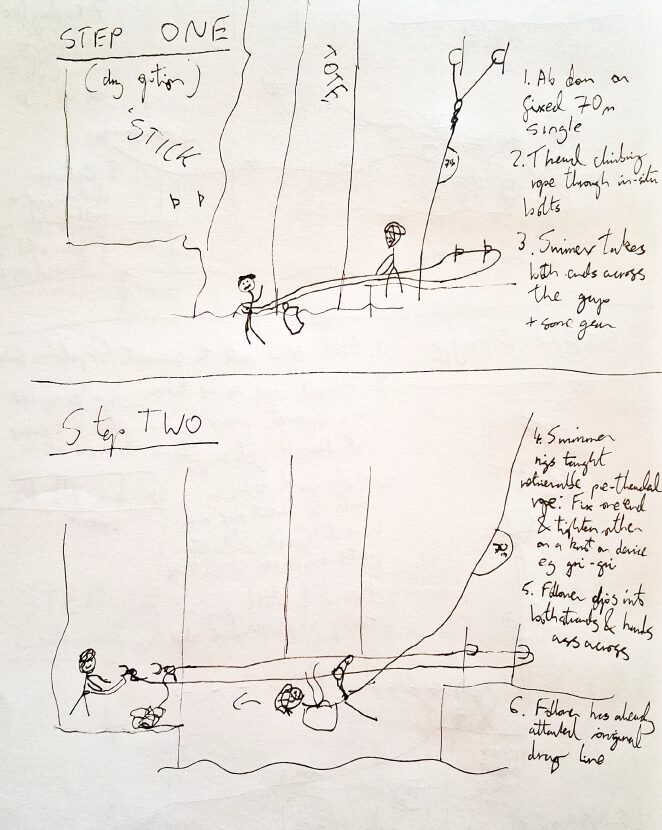 STEP ONE
(dry option)
'STICK
TOTE,
70
1. Ab down on
fixed 70m
single
2. Thread climbing
rope through in-situ
bolts
3. Swimmer takes
both ends across
the gap
+ some gear
Step TWO
4. Swimmer
rigs taught
retrievable pre-threaded
rope: Fix one end
& tighten other
on a knot or device
eg gri-gri
70m
5. Follower clips into
both strands & hands
across
6. Follower has already
attached original
drag line